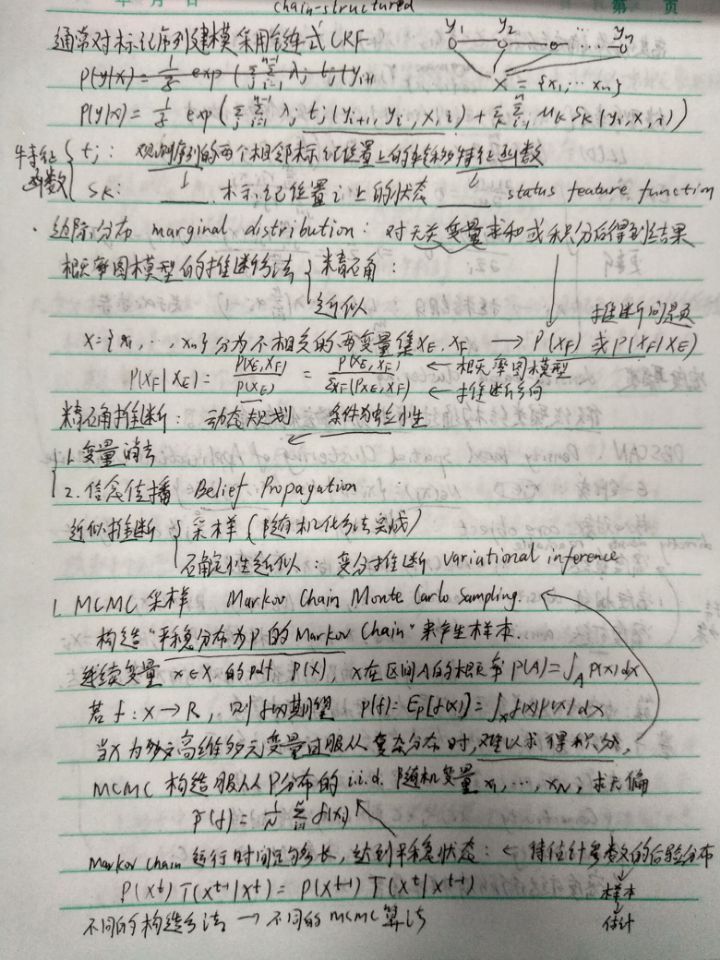 chain-structured
通常对标记序列建模采用链式CRF
y₁ y₂ … yₙ
X = {x₁, … xₙ}
P(y|x) = 1/z exp (Σⱼ Σᵢ₌₁ⁿ⁻¹ λⱼ tⱼ (yᵢ₊₁
P(y|x) = 1/z exp (Σⱼ Σᵢ₌₁ⁿ⁻¹ λⱼ tⱼ (yᵢ₊₁, yᵢ, x, i) + Σₖ Σᵢ₌₁ⁿ μₖ sₖ (yᵢ, x, i))
特征函数
tⱼ: 观测序列的两个相邻标记位置上的转移特征函数
sₖ: 标记位置 i 上的状态 status feature function
· 边际分布 marginal distribution: 对无关变量求和或积分后得到结果
概率图模型的推断算法 { 精确:
近似
推断问题
x = {x₁, …, xₙ} 分为不相交的两变量集 x_E, x_F → P(x_F) 或 P(x_F|x_E)
P(x_F|x_E) = P(x_E, x_F) / P(x_E) = P(x_E, x_F) / Σx_F(P x_E, x_F) ← 概率图模型
← 推断方向
精确推断: 动态规划 条件独立性
1. 变量消去
2. 信念传播 Belief Propagation
近似推断 { 采样 (随机化方法完成)
确定性近似: 变分推断 variational inference
1. MCMC 采样 Markov Chain Monte Carlo Sampling.
构造"平稳分布为 p 的 Markov Chain" 来产生样本.
继续变量 x∈X 的 pdf P(x), x 在区间 A 的概率 P(A) = ∫_A P(x) dx
若 f: X → R, 则 f 的期望 P(f) = E_P[f(x)] = ∫ₓ f(x) P(x) dx
当 X 为高维多元变量且服从复杂分布时, 难以求得积分.
MCMC 构造服从 P 分布的 i.i.d. 随机变量 x₁, …, x_N, 求无偏
P̃(f) = 1/N Σ f(xᵢ)
Markov chain 运行时间足够长, 达到平稳状态: ← 待估计参数的后验分布
P(xᵗ) T(xᵗ⁻¹|xᵗ) = P(xᵗ⁻¹) T(xᵗ|xᵗ⁻¹)
样本
估计
不同的构造方法 → 不同的 MCMC 算法